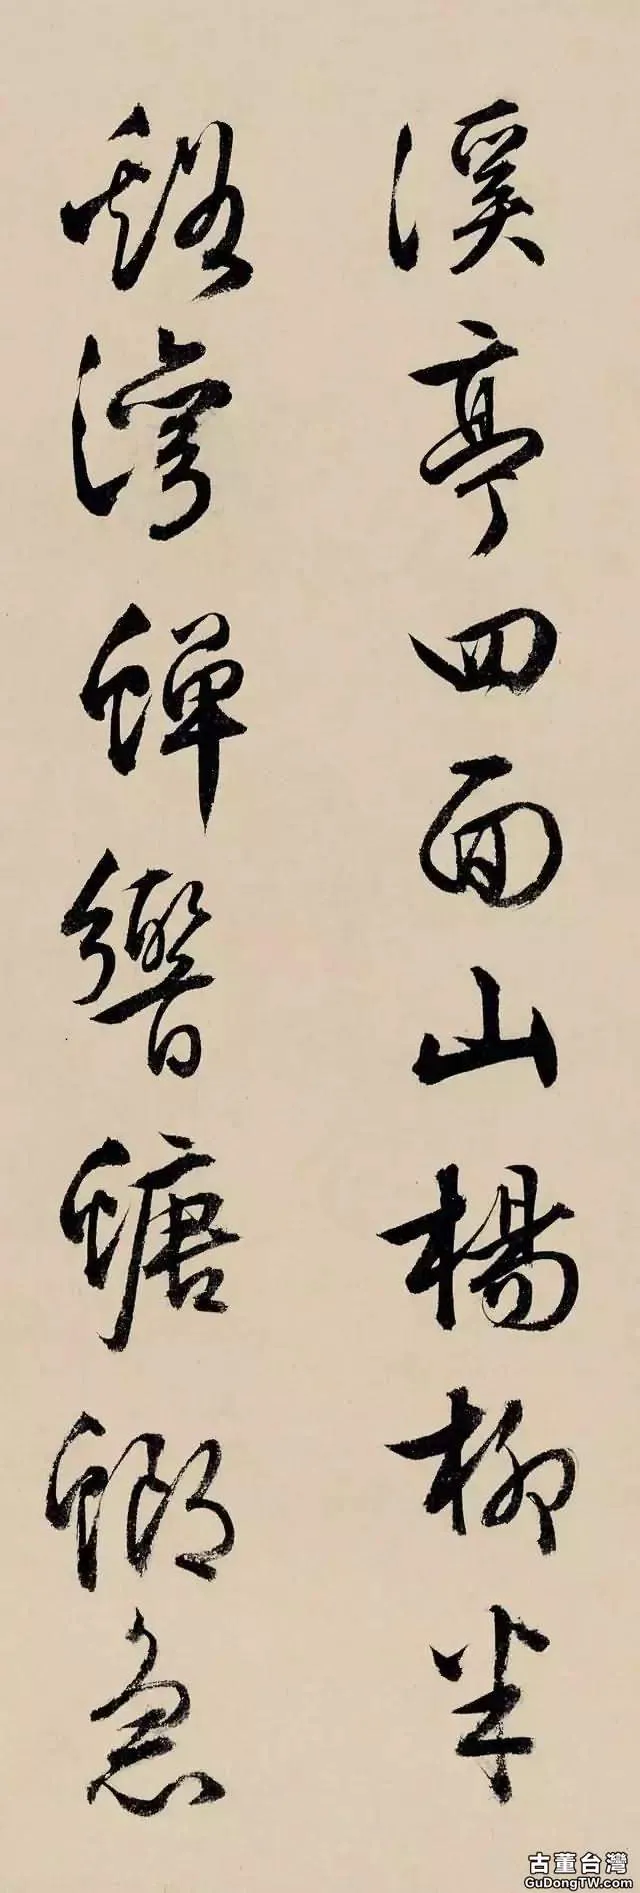 溪亭四面山楊柳半
谿灣蟬響螗螂急
古董台灣
GuDongTW.com